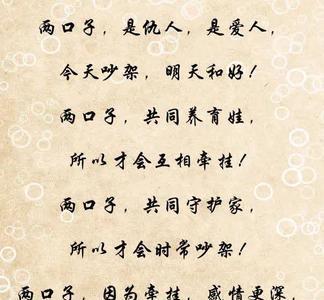 两口子，是仇人，是爱人，
今天吵架，明天和好！
两口子，共同养育娃，
所以才会互相牵挂！
两口子，共同守护家，
所以才会时常吵架！
两口子，因为牵挂，感情更深，